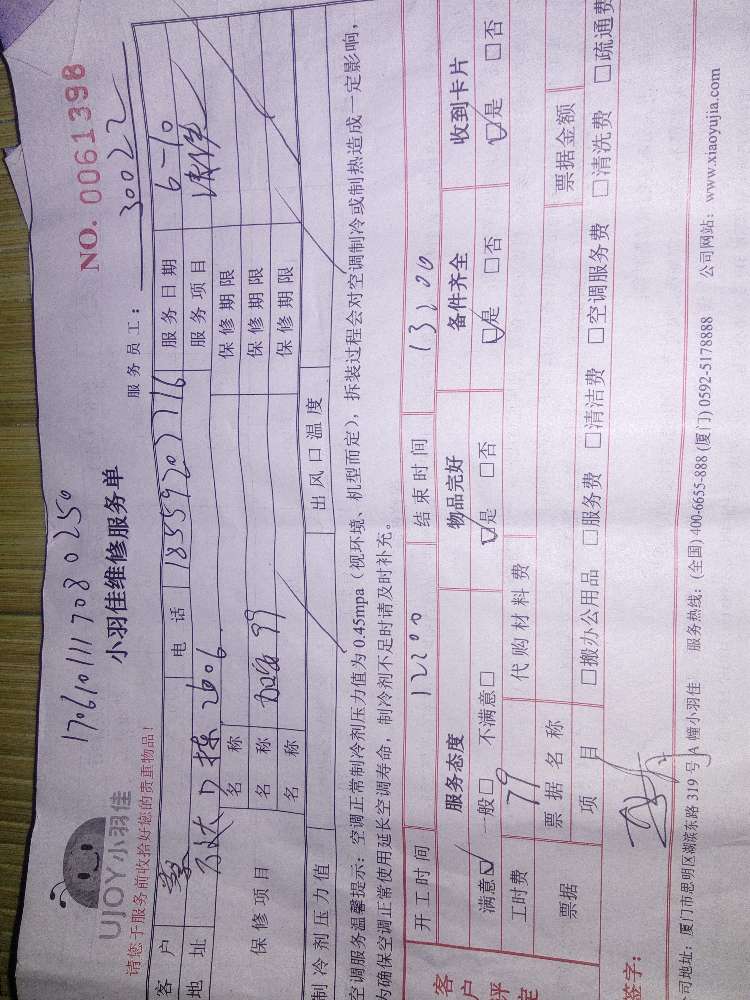 170610111708025０
NO. 0061398
UJOY小羽佳
小羽佳维修服务单
服务员工： 30022
请您于服务前收拾好您的贵重物品！
客户 电话 18559207716 服务日期 6-10
地址 万达D栋2606 服务项目
保修项目 名称 保修期限
名称 加氟 99 保修期限
名称 保修期限
制冷剂压力值 出风口温度
空调服务温馨提示：空调正常制冷剂压力值为 0.45mpa（视环境、机型而定），拆装过程会对空调制冷或制热造成一定影响，
为确保空调正常使用延长空调寿命，制冷剂不足时请及时补充。
开工时间 12:00 结束时间 13:00
客户评定 服务态度 物品完好 备件齐全 收到卡片
满意☑ 一般□ 不满意□ ☑是 □否 ☑是 □否 ☑是 □否
工时费 99 代购材料费
票据 票据名称 票据金额
项目 □搬办公用品 □服务费 □清洁费 □空调服务费 □清洗费 □疏通费
签字：
司地址：厦门市思明区湖滨东路 319 号 A 幢小羽佳 服务热线：(全国) 400-6655-888 (厦门) 0592-5178888 公司网站：www.xiaoyujia.com